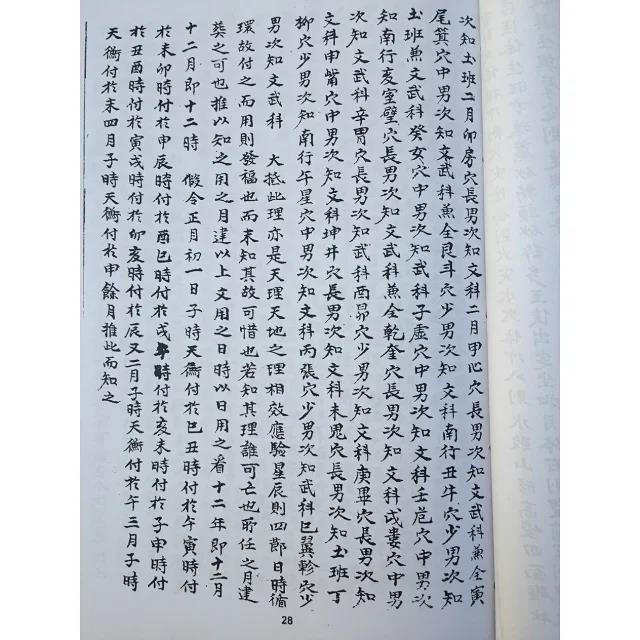 次知土班二月卯房穴長男次知文科二月甲心穴長男次知文武科兼全寅
尾箕穴中男次知文武科兼全艮斗穴少男次知文科南行丑牛穴少男次知
土班兼文武科癸女穴中男次知文武科子虛穴中男次知文科壬危穴中男次
知南行亥室壁穴長男次知文武科兼全乾奎穴長男次知文科戌婁穴中男
次知文武科辛胃穴長男次知武科酉昴穴少男次知文科庚畢穴長男次知
文科申觜穴中男次知文科坤井穴長男次知文科未鬼穴長男次知土班丁
柳穴少男次知南行午星穴中男次知文科丙張穴少男次知武科巳翼軫穴少
男次知文武科 大抵此理亦是天理天地之理相效應驗星辰則四節日時循
環故付之而用則發福也而未知其故可惜也若知其理誰可亡也所任之月建
葬之可也推以知之用之月建以上文用之日時以日用之看十二年即十二月
十二月即十二時 假令正月初一日子時天衡付於巳丑時付於午寅時付
於未卯時付於申辰時付於酉巳時付於戌午時付於亥未時付於子申時付
於丑酉時付於寅戌時付於卯亥時付於辰又二月子時天衡付於午三月子時
天衡付於未四月子時天衡付於申餘月推此而知之
28